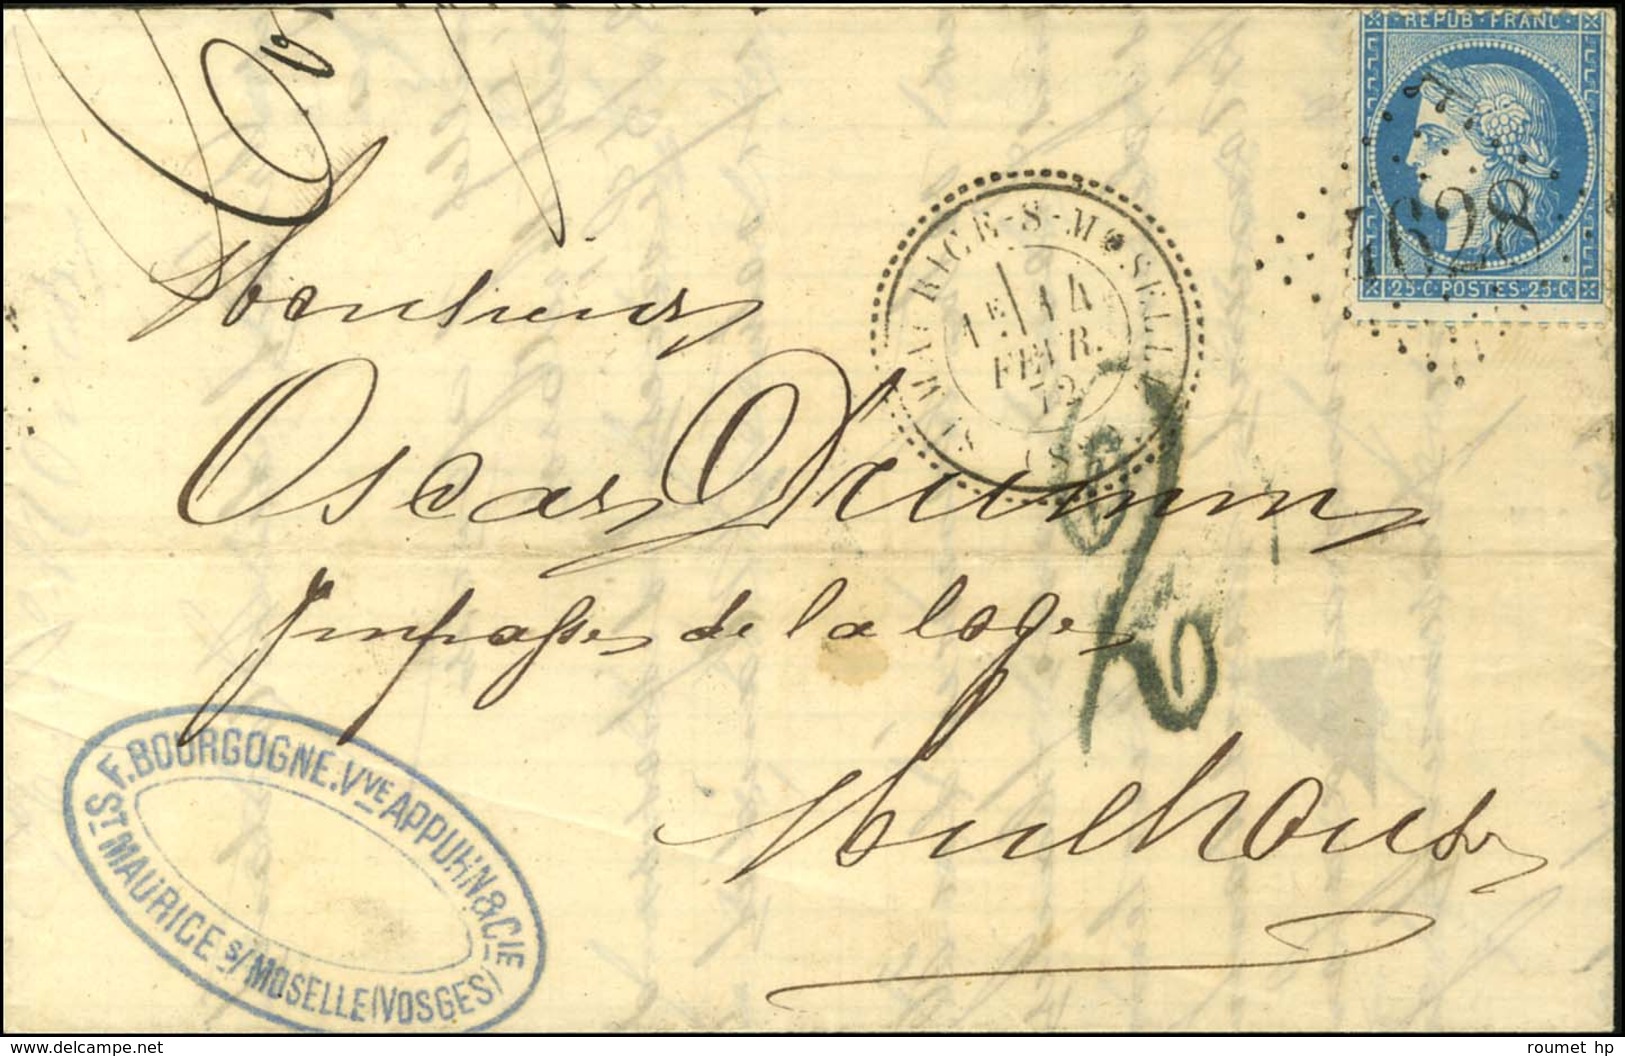 REPUB·FRANC·
4628
25·C·POSTES·25·C·
ST MAURICE-S-MOSELLE
1E 14
FEVR.
72
(88)
Monsieur
Oscar Drumm
Impasse de la loge
2
Mulhouse
F. BOURGOGNE. Vve APPUHN & Cie
St MAURICE s/ MOSELLE (VOSGES)
roumet hp